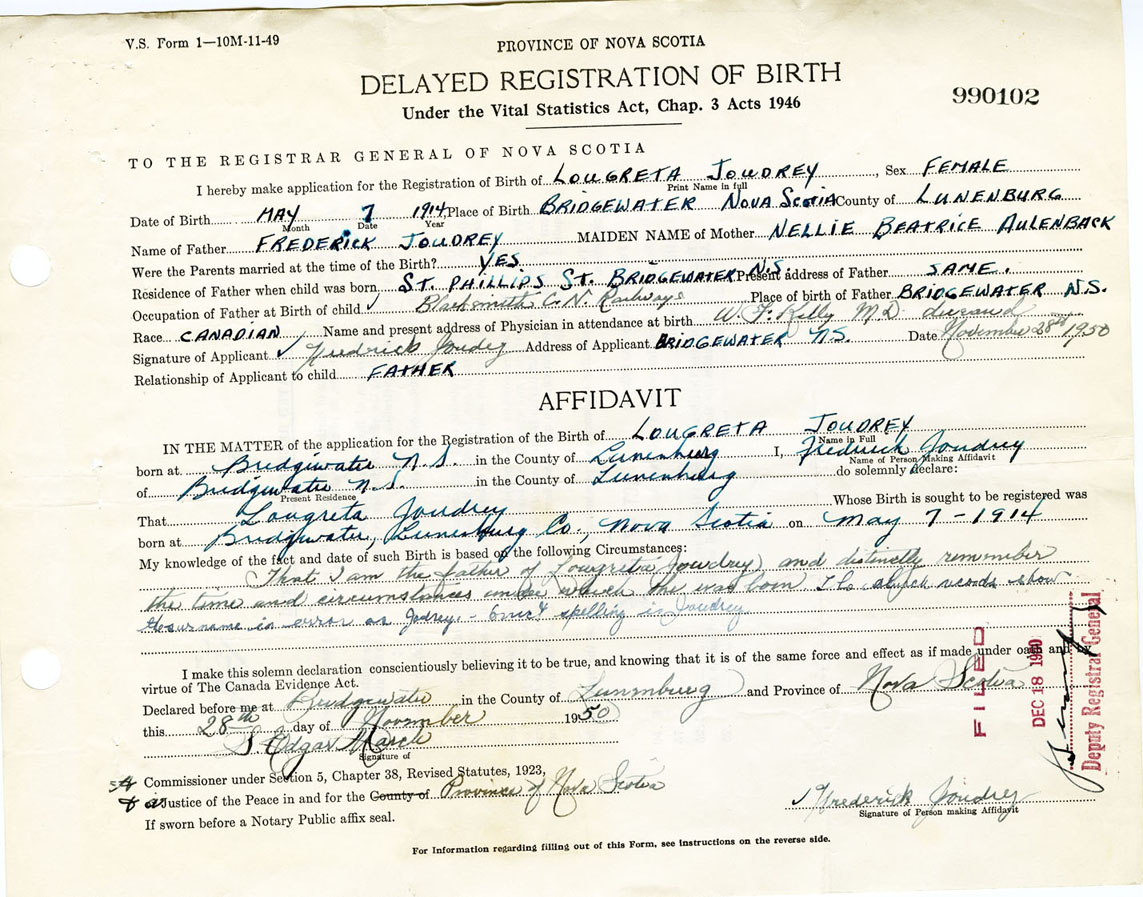 V.S. Form 1—10M-11-49
PROVINCE OF NOVA SCOTIA
DELAYED REGISTRATION OF BIRTH
990102
Under the Vital Statistics Act, Chap. 3 Acts 1946
TO THE REGISTRAR GENERAL OF NOVA SCOTIA
I hereby make application for the Registration of Birth of LOUGRETA JOUDREY, Sex FEMALE
Print Name in full
Date of Birth MAY 7 1914 Place of Birth BRIDGEWATER NOVA SCOTIA County of LUNENBURG
Month Date Year
Name of Father FREDERICK JOUDREY MAIDEN NAME of Mother NELLIE BEATRICE AULENBACK
Were the Parents married at the time of the Birth? YES
Residence of Father when child was born ST. PHILLIPS ST. BRIDGEWATER N.S. Present address of Father SAME.
Occupation of Father at Birth of child ✓ Blacksmith C.N. Railways Place of birth of Father BRIDGEWATER N.S.
Race CANADIAN Name and present address of Physician in attendance at birth W. F. Kelly M.D.
Signature of Applicant ✓ Fredrick Joudrey Address of Applicant BRIDGEWATER N.S. Date November 28th 1950
Relationship of Applicant to child FATHER
AFFIDAVIT
IN THE MATTER of the application for the Registration of the Birth of LOUGRETA JOUDREY
Name in Full
born at Bridgewater N.S. in the County of Lunenburg I, Fredrick Joudrey
Name of Person Making Affidavit
of Bridgewater N.S. in the County of Lunenburg do solemnly declare:
Present Residence
That Lougreta Joudrey Whose Birth is sought to be registered was
born at Bridgewater, Lunenburg Co, Nova Scotia on May 7 - 1914
My knowledge of the fact and date of such Birth is based on the following Circumstances:
That I am the father of Lougreta Joudrey and distinctly remember
the time and circumstances under which she was born The church records show
the surname in error as Jodrey. - spelling is Joudrey
I make this solemn declaration conscientiously believing it to be true, and knowing that it is of the same force and effect as if made under oath and by
virtue of The Canada Evidence Act.
Declared before me at Bridgewater in the County of Lunenburg and Province of Nova Scotia
this 28th day of November 1950
S. Edgar March
Signature of
Commissioner under Section 5, Chapter 38, Revised Statutes, 1923,
Justice of the Peace in and for the County of Province of Nova Scotia
If sworn before a Notary Public affix seal.
✓ Frederick Joudrey
Signature of Person making Affidavit
For Information regarding filling out of this Form, see instructions on the reverse side.
FILED
DEC 18 1950
Deputy Registrar General